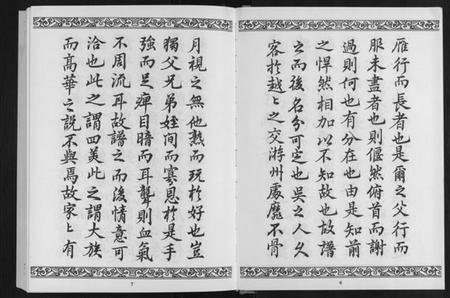 雁行而長者也是爾之父行而
服未盡者也則偃然俯首而謝
過則何也有分在也由是知前
之悍然相加以不知故也故譜
立而後名分可定也吳之人久
客於越上之交游州處魔不骨
6
月視之無他熟而玩於好也豈
獨父兄弟姪間而寡恩於是手
強而足痺目暗而耳聾則血氣
不周流耳故譜之而後情意可
洽也此之謂四美此之謂大族
而高華之說不與焉故家上有
7